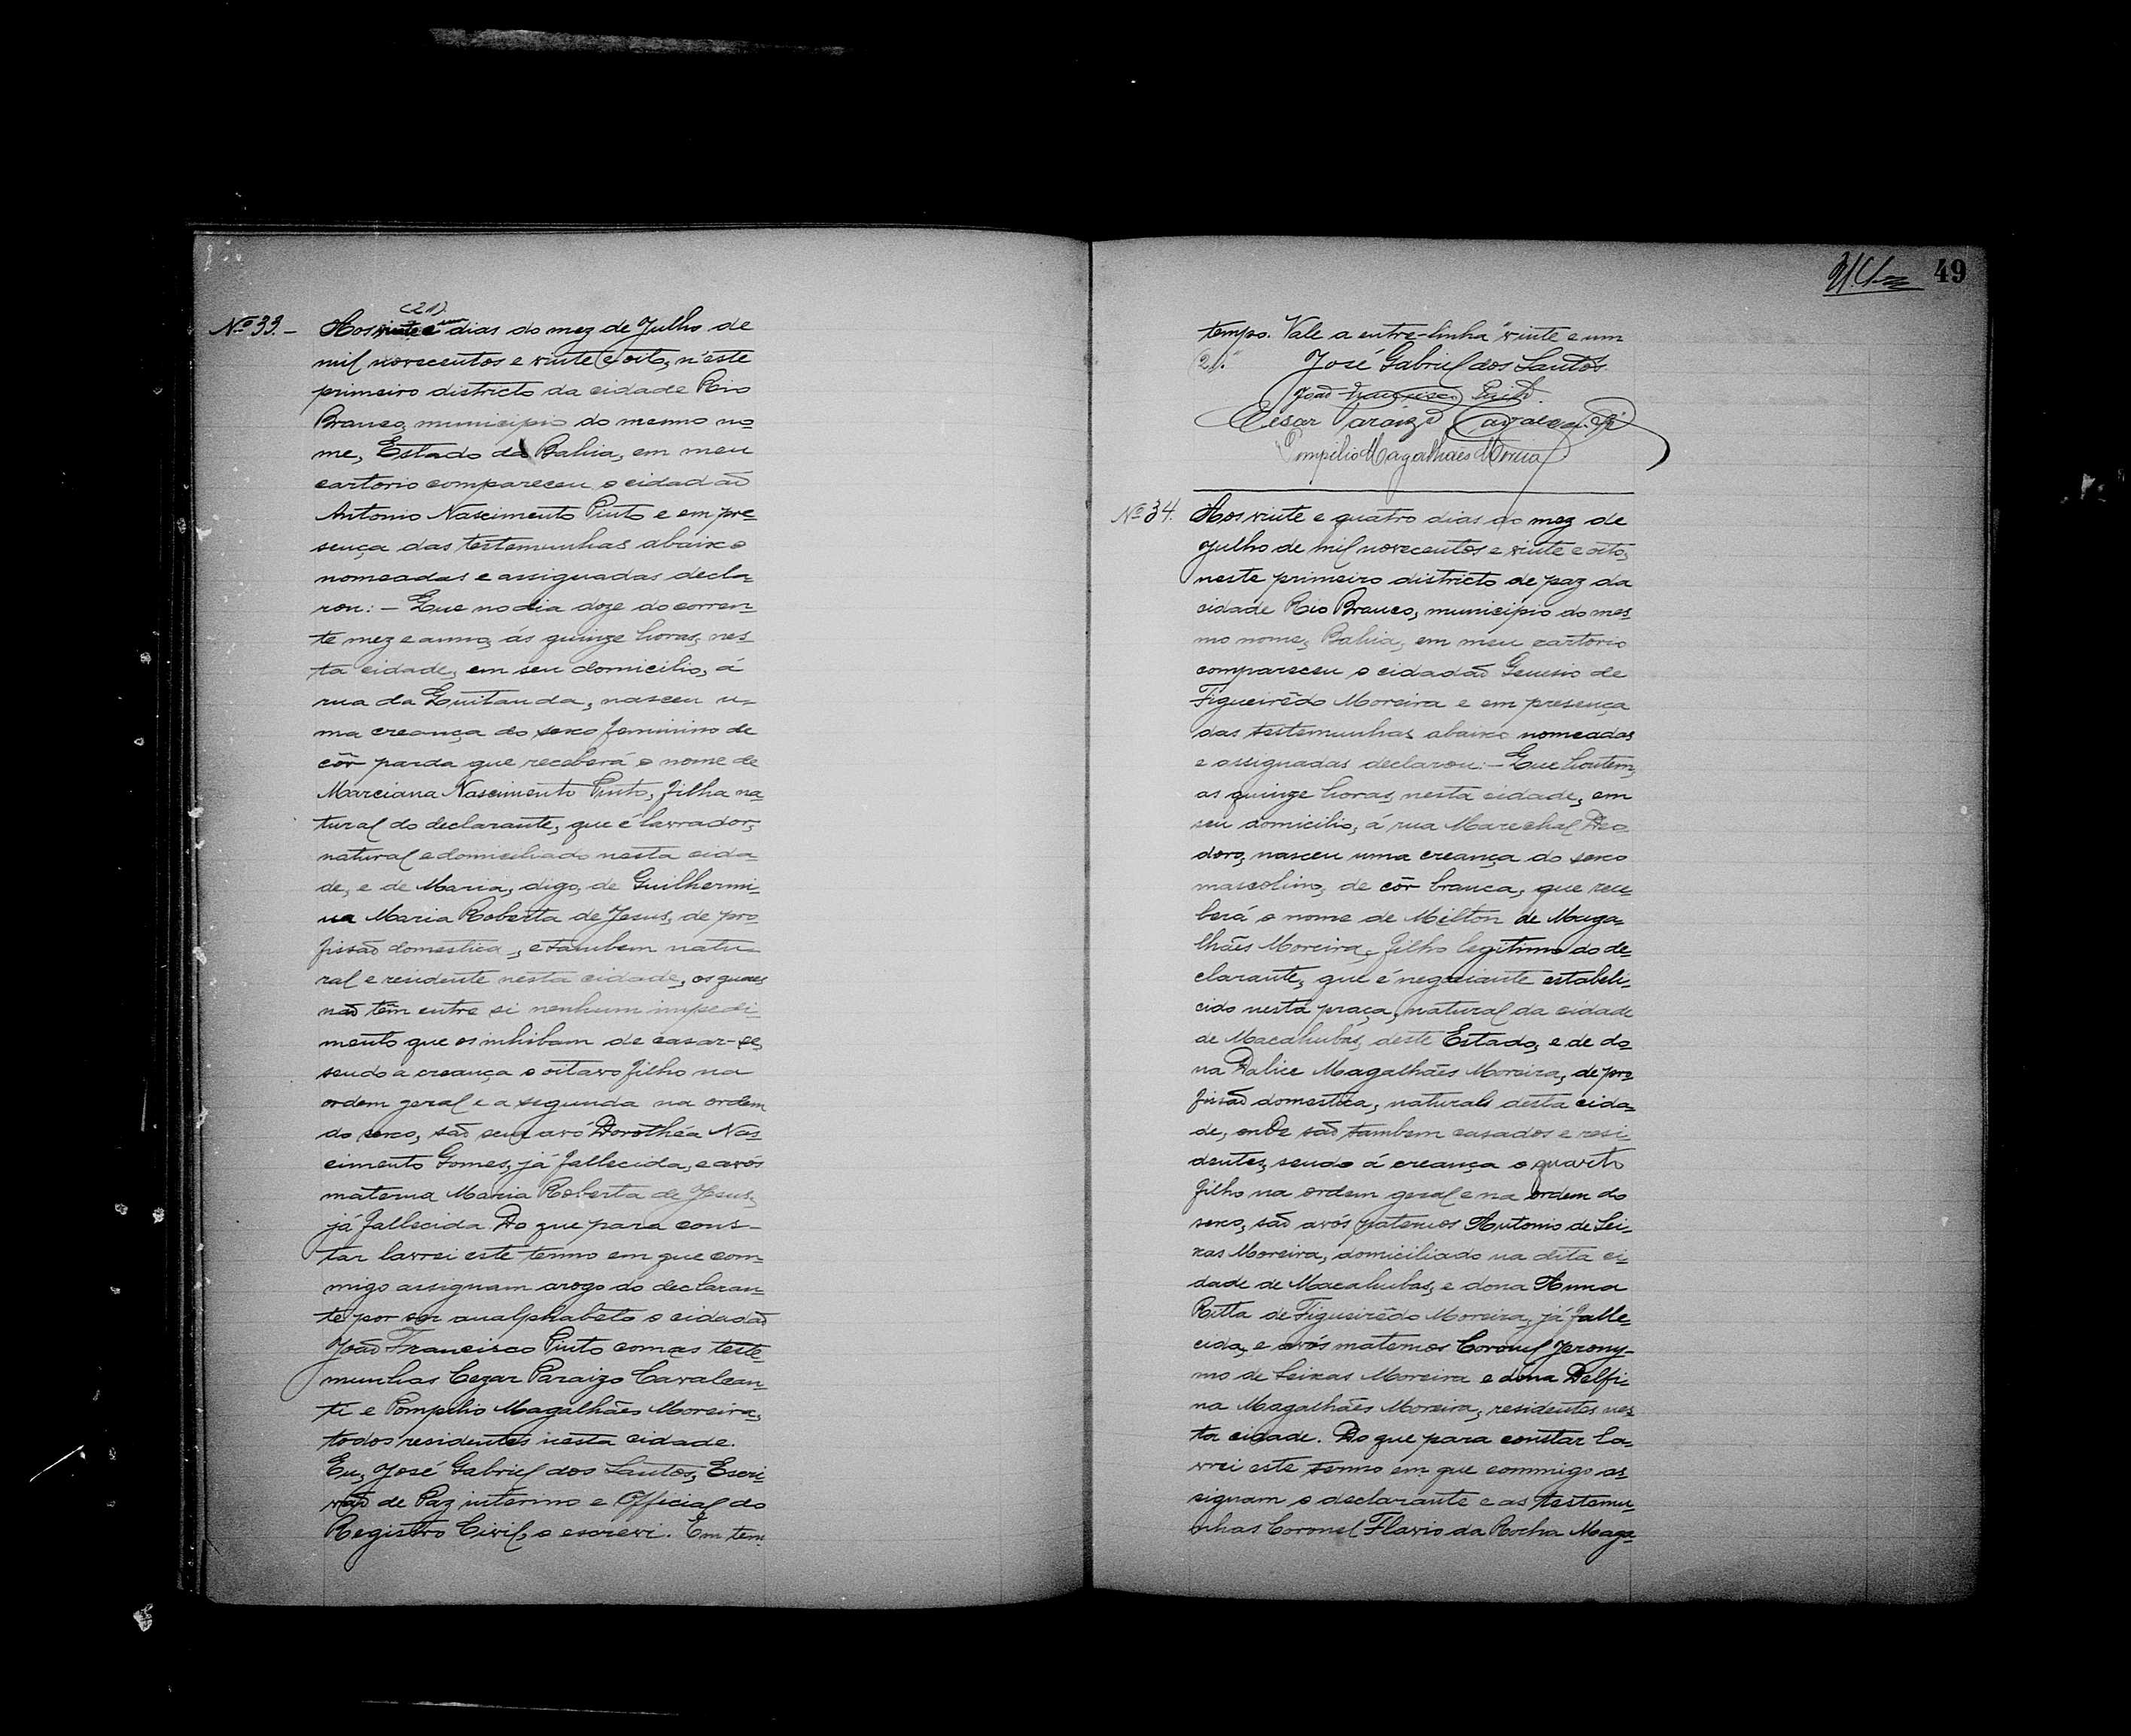 (21)
Nº 33. - Aos vinte e um dias do mez de Julho de
mil novecentos e vinte e oito, n'este
primeiro districto da cidade Rio
Branco, municipio do mesmo no-
me, Estado da Bahia, em meu
cartorio compareceu o cidadaõ
Antonio Nascimento Pinto e em pre-
sença das testemunhas abaixo
nomeadas e assignadas decla-
rou: - Que no dia doze do corren-
te mez e anno, ás quinze horas, nes-
ta cidade, em seu domicilio, á
rua da Quitanda, nasceu u-
ma creança do sexo feminino de
côr parda que receberá o nome de
Marciana Nascimento Pinto, filha na-
tural do declarante, que é lavrador,
natural e domiciliado nesta cida-
de, e de Maria, digo, de Guilhermi-
na Maria Roberta de Jesus, de pro
fissaõ domestica, e tambem natu-
ral e residente nesta cidade, os quaes
naõ têm entre si nenhum impedi-
mento que os inhibam de casar-se,
sendo a creança o oitavo filho na
ordem geral e a segunda na ordem
do sexo, saõ seus avó Dorothéa Nas-
cimento Gomes, já fallecida, e avós
materna Maria Roberta de Jesus,
já fallecida. Do que para cons-
tar lavrei este termo em que com-
migo assignam arogo do declaran-
te por ser analphabeto o cidadaõ
Joaõ Francisco Pinto com as teste-
munhas Cezar Paraizo Cavalcan-
ti e Pompilio Magalhães Moreira,
todos residentes nesta cidade.
Eu, José Gabriel dos Santos, Escri-
vaõ de Paz interino e Official do
Registro Civil, o escrevi. Em tem-
49
tempo. Vale a entre-linha "vinte e um
21."
José Gabriel dos Santos
Joaõ Francisco Pinto.
Cesar Paraizo Cavalcanti
Pompilio Magalhães Moreira
Nº 34. Aos vinte e quatro dias do mez de
Julho de mil novecentos e vinte e oito,
neste primeiro districto de paz da
cidade Rio Branco, municipio do mes-
mo nome, Bahia, em meu cartorio
compareceu o cidadaõ Genesio de
Figueirêdo Moreira e em presença
das testemunhas abaixo nomeadas
e assignadas declarou: - Que hontem,
as quinze horas, nesta cidade, em
seu domicilio, á rua Marechal Deo-
doro, nasceu uma creança do sexo
mascolino, de côr branca, que rece-
berá o nome de Milton de Maga-
lhães Moreira, filho legitimo do de-
clarante, que é negociante estabeli-
cido nesta praça, natural da cidade
de Macahubas, deste Estado, e de do-
na Dalice Magalhães Moreira, de pro-
fissaõ domestica, naturals desta cida-
de, onde saõ tambem casados e resi-
dentes, sendo á creança o quarto
filho na ordem geral e na ordem do
sexo, saõ avós paternos Antonio de Sei-
xas Moreira, domiciliado na dita ci-
dade de Macahubas, e dona Anna
Ritta de Figueirêdo Moreira, já falle-
cida, e avós maternos Coronel Jerony-
mo de Seixas Moreira e dona Delfi-
na Magalhães Moreira, residentes nes-
ta cidade. Do que para constar la-
vrei este termo em que commigo as-
signam o declarante e as testemu-
nhas Coronel Flavio da Rocha Maga-